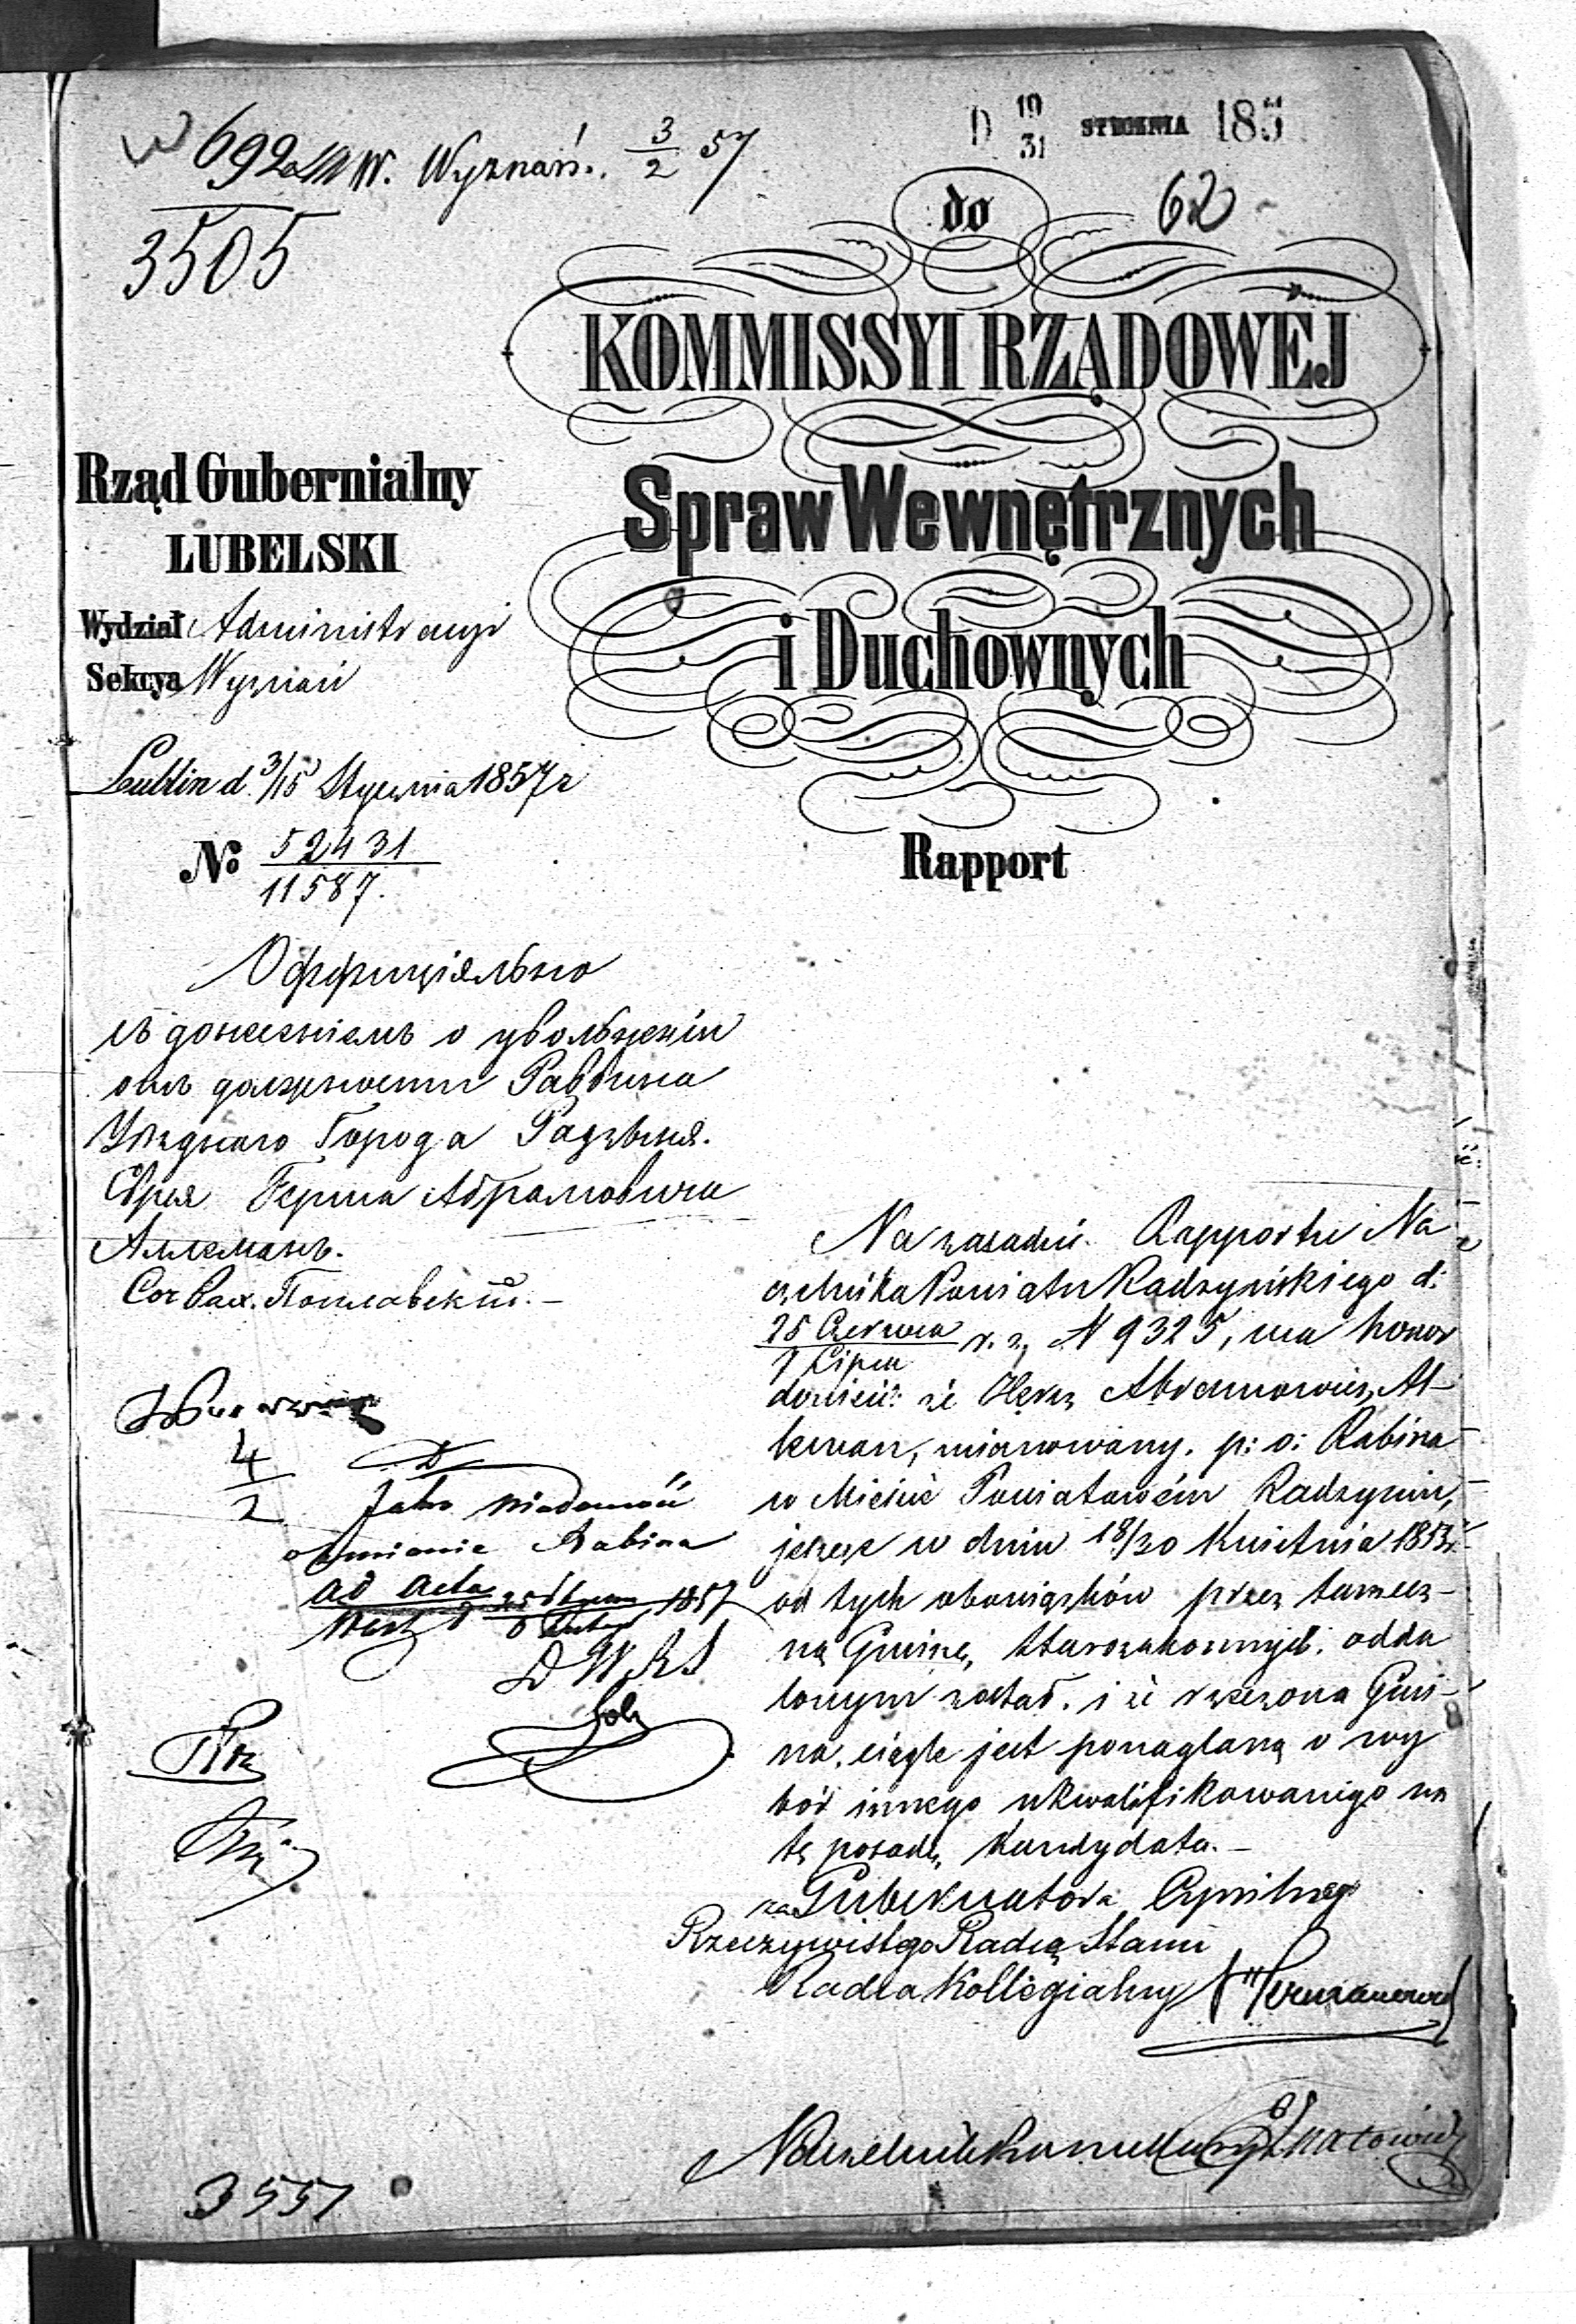 692 W. Wyznań. 3/2 57
3505
D 19/31 STYCZNIA 185
do
62
KOMMISSYI RZĄDOWEJ
Spraw Wewnętrznych
i Duchownych
Rapport
Rząd Gubernialny
LUBELSKI
Wydział Administracyi
Sekcya Wyznań
Lublin d. 3/15 Stycznia 1857 r
№ 52431
11587.
Оффиціяльно
съ донесеніемъ о увольненіи
отъ должности Раввина
Уѣзднаго Города Радзыня.
Еврея Герша Абрамовича
Алькманъ.
4
2
Jako wiadomość
o zmianie Rabina
ad acta
1857
D W R S
Na zasadzie Rapportu Na
czelnika Powiatu Radzyńskiego d:
25 Czerwca
7 Lipca
r. z. N 9325, ma honor
donieść: że Hersz Abramowicz Al-
kman, mianowany p: o: Rabina
w Mieście Powiatowém Radzyniu,
jeszcze w dniu 18/30 Kwietnia 1853 r
od tych obowiązków przez tamecz-
ną Gminę Starozakonnych odda
lonym został. i że rzeczona Gmi-
na, ciągle jest ponaglaną o wy
bór innego ukwalifikowanego na
tę posadę, kandydata.-
za Gubernatora Cywilnego
Rzeczywistego Radcę Stanu
Radca Kollegialny
Naczelnik Kancellaryi Ignatowicz
3551